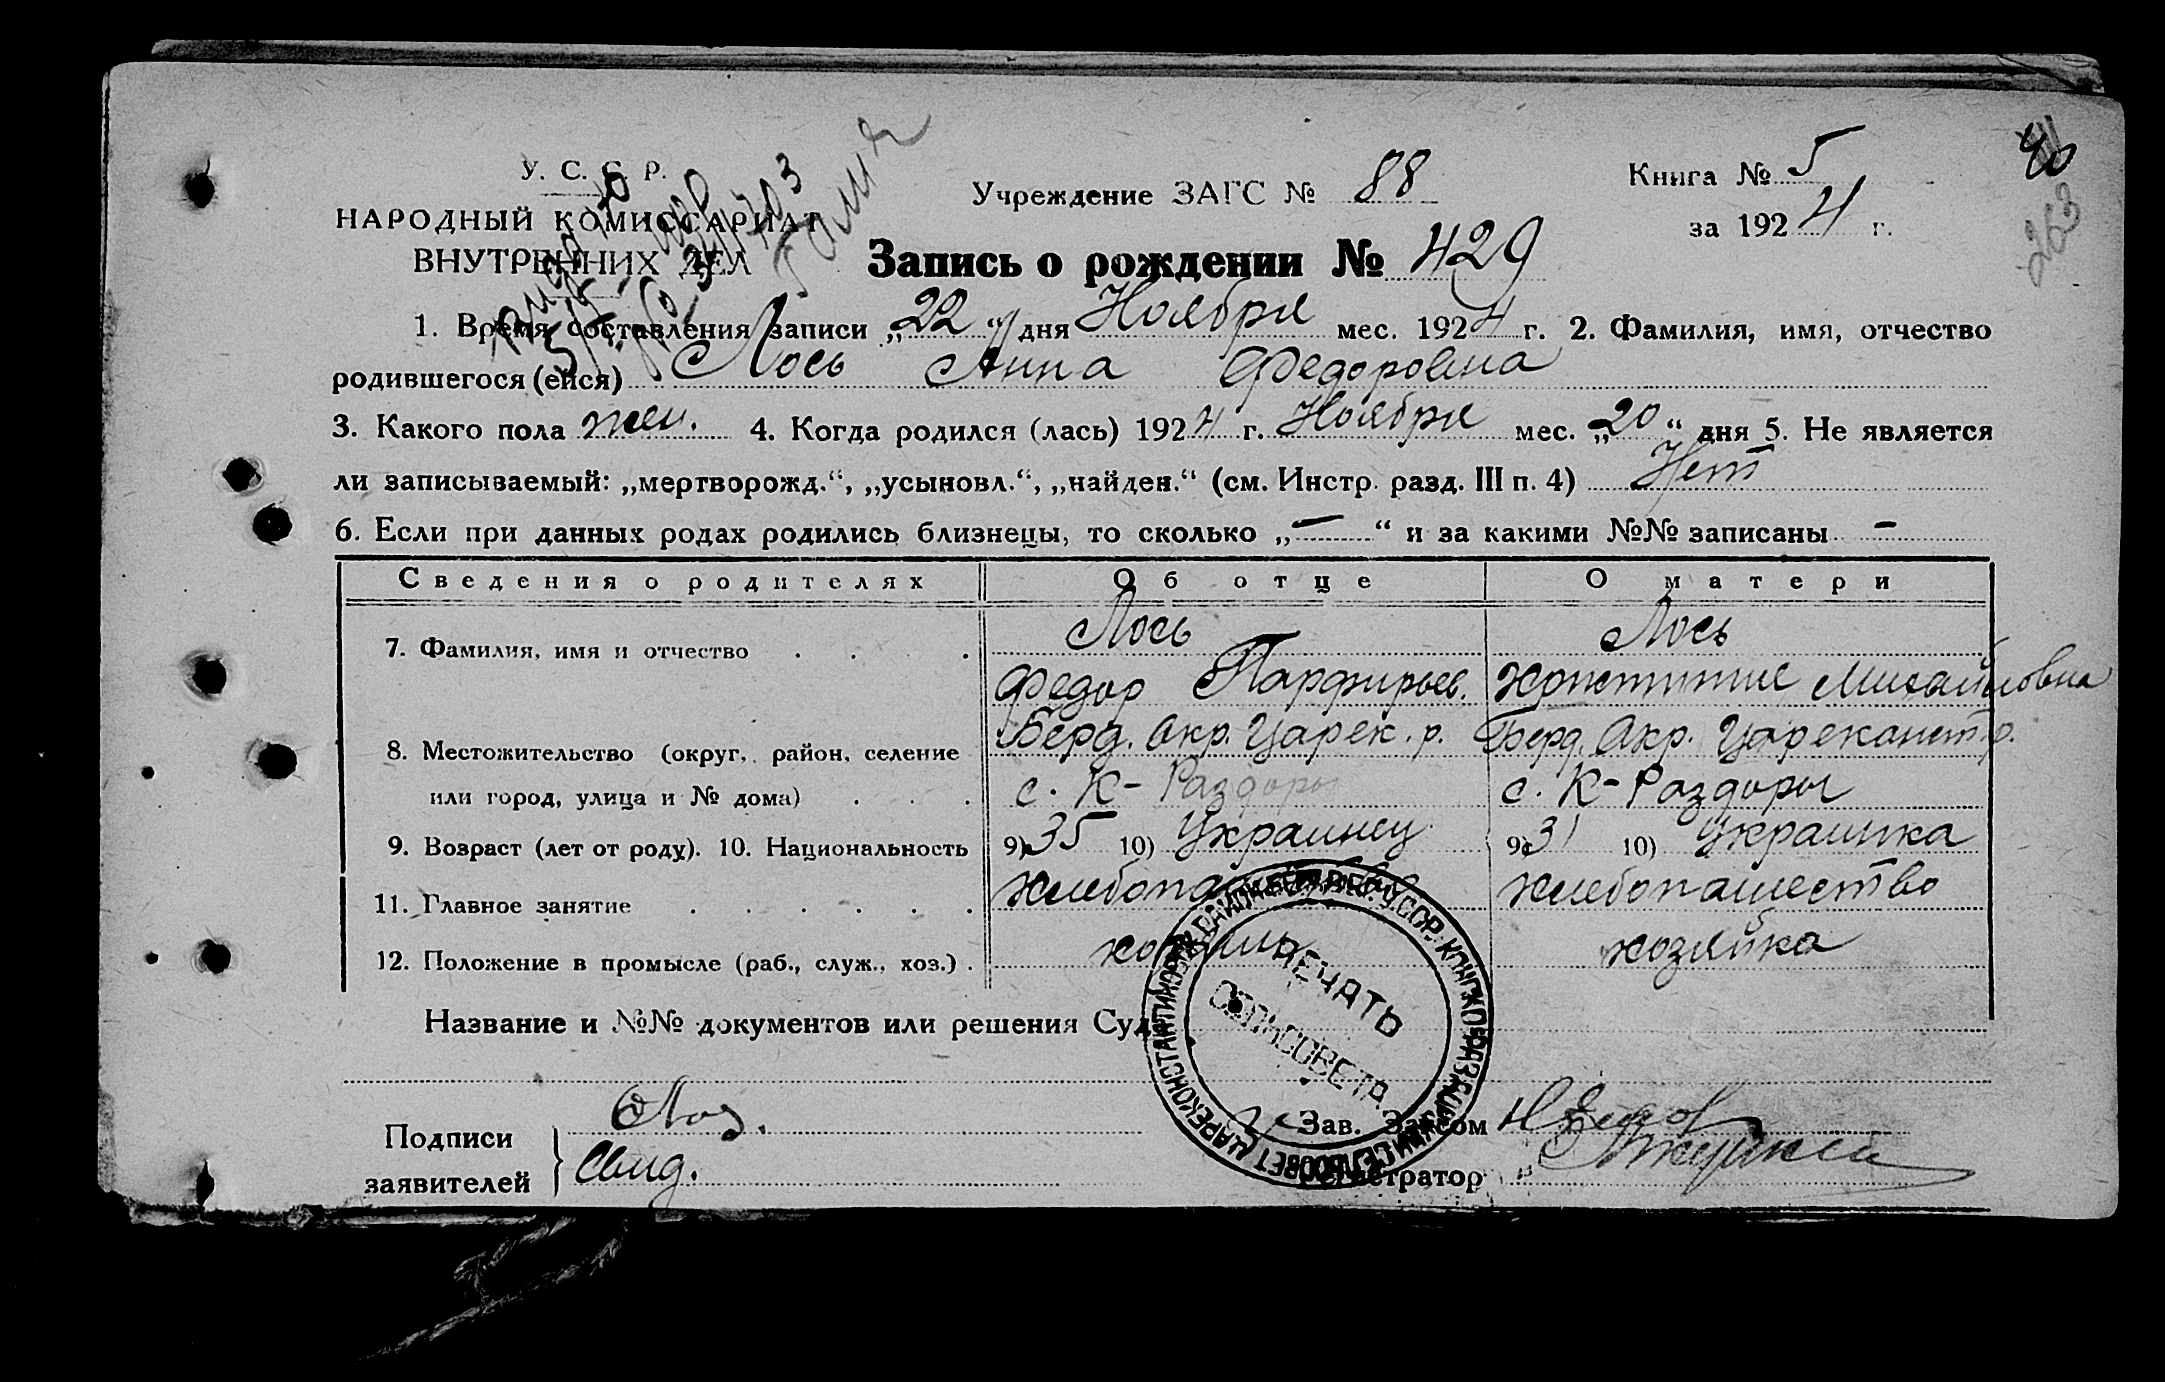 У. С. С. Р.
НАРОДНЫЙ КОМИССАРИАТ
ВНУТРЕННИХ ДЕЛ
Учреждение ЗАГС № 88
Книга № 5
за 1924 г.
40
263
Запись о рождении № 429
1. Время составления записи „22“ дня Ноября мес. 1924 г. 2. Фамилия, имя, отчество
родившегося (ейся) Лось Анна Федоровна
3. Какого пола жен. 4. Когда родился (лась) 1924 г. Ноября мес. „20“ дня 5. Не является
ли записываемый: „мертворожд.“, „усыновл.“, „найден.“ (см. Инстр. разд. III п. 4) Нет
6. Если при данных родах родились близнецы, то сколько „—“ и за какими №№ записаны –
Сведения о родителях Об отце О матери
7. Фамилия, имя и отчество . . . Лось Лось
Федор Парфирьев. Христития Михайловна
8. Местожительство (округ, район, селение Берд. Окр. Царек. р. Берд. Окр. Цареконст. р.
или город, улица и № дома) . . . с. К-Раздоры с. К-Раздоры
9. Возраст (лет от роду). 10. Национальность 9) 35 10) Украинец 9) 31 10) Украинка
11. Главное занятие . . . . . хлебопашество
12. Положение в промысле (раб., служ., хоз.) . хозяин хозяйка
Название и №№ документов или решения Суда
ПЕЧАТЬ
СЕЛЬСОВЕТА
Подписи
заявителей
Лось.
Свид.
Зав. Загсом
Регистратор